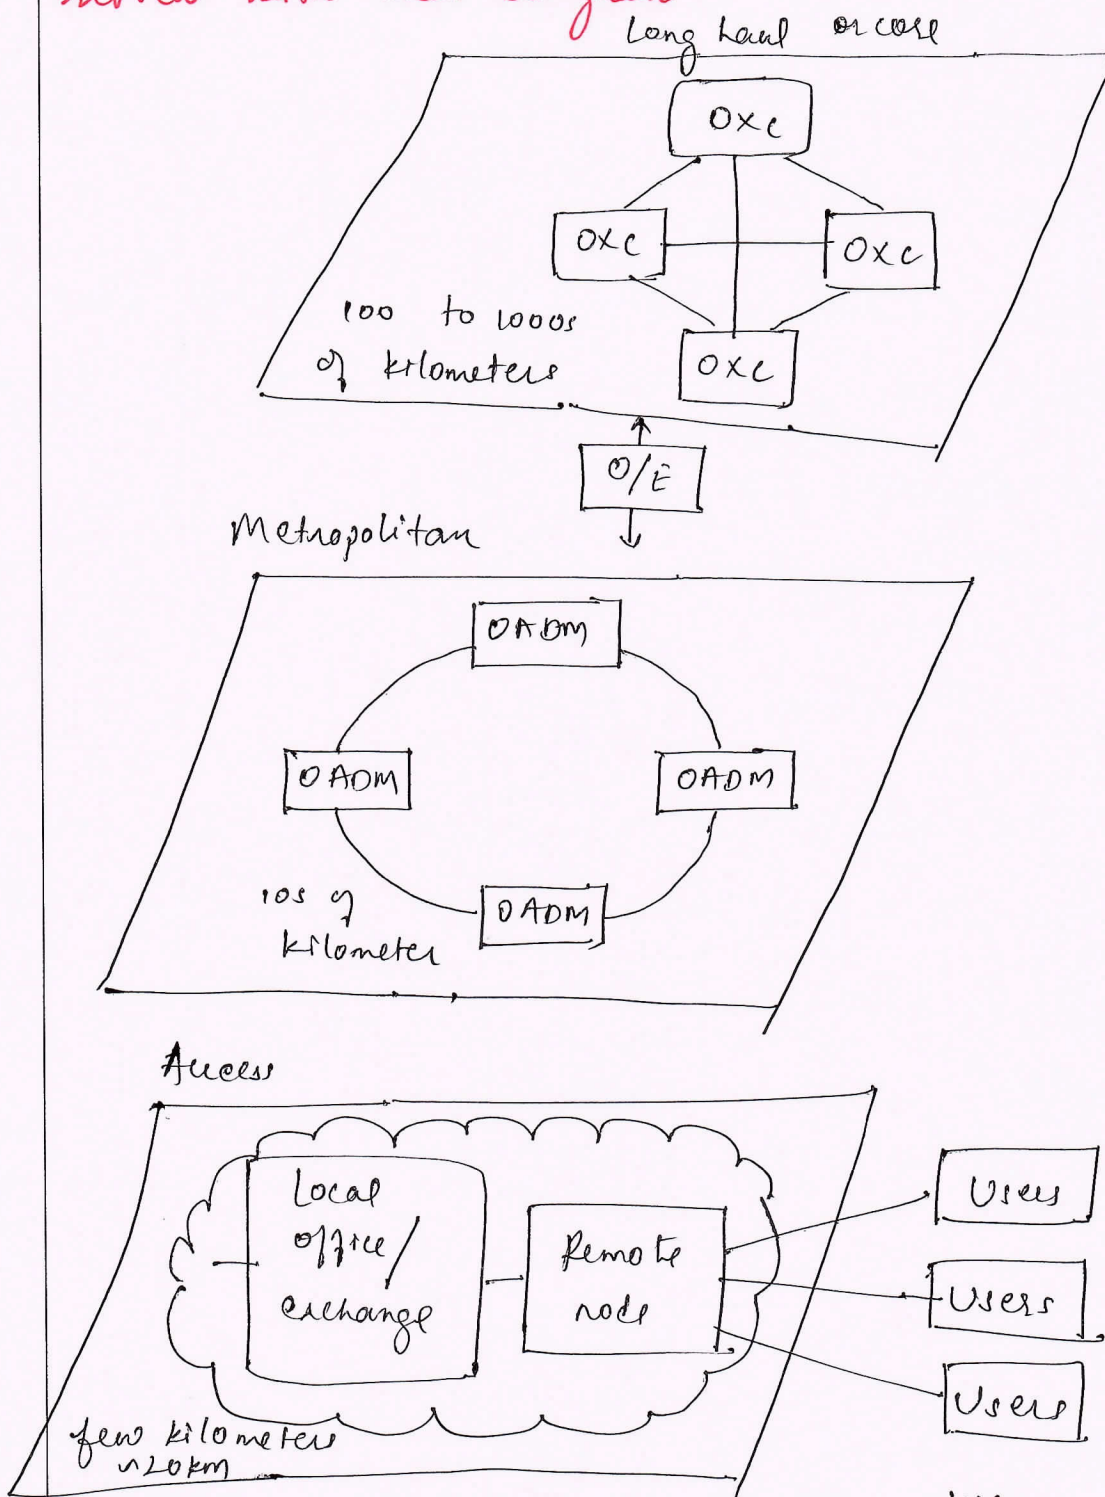 Long haul or core
OXC
OXC
OXC
100 to 1000s
of kilometers
OXC
O/E
Metropolitan
OADM
OADM
OADM
10s of
kilometer
OADM
Access
Local
office/
exchange
Remote
node
Users
Users
Users
few kilometers
~20km